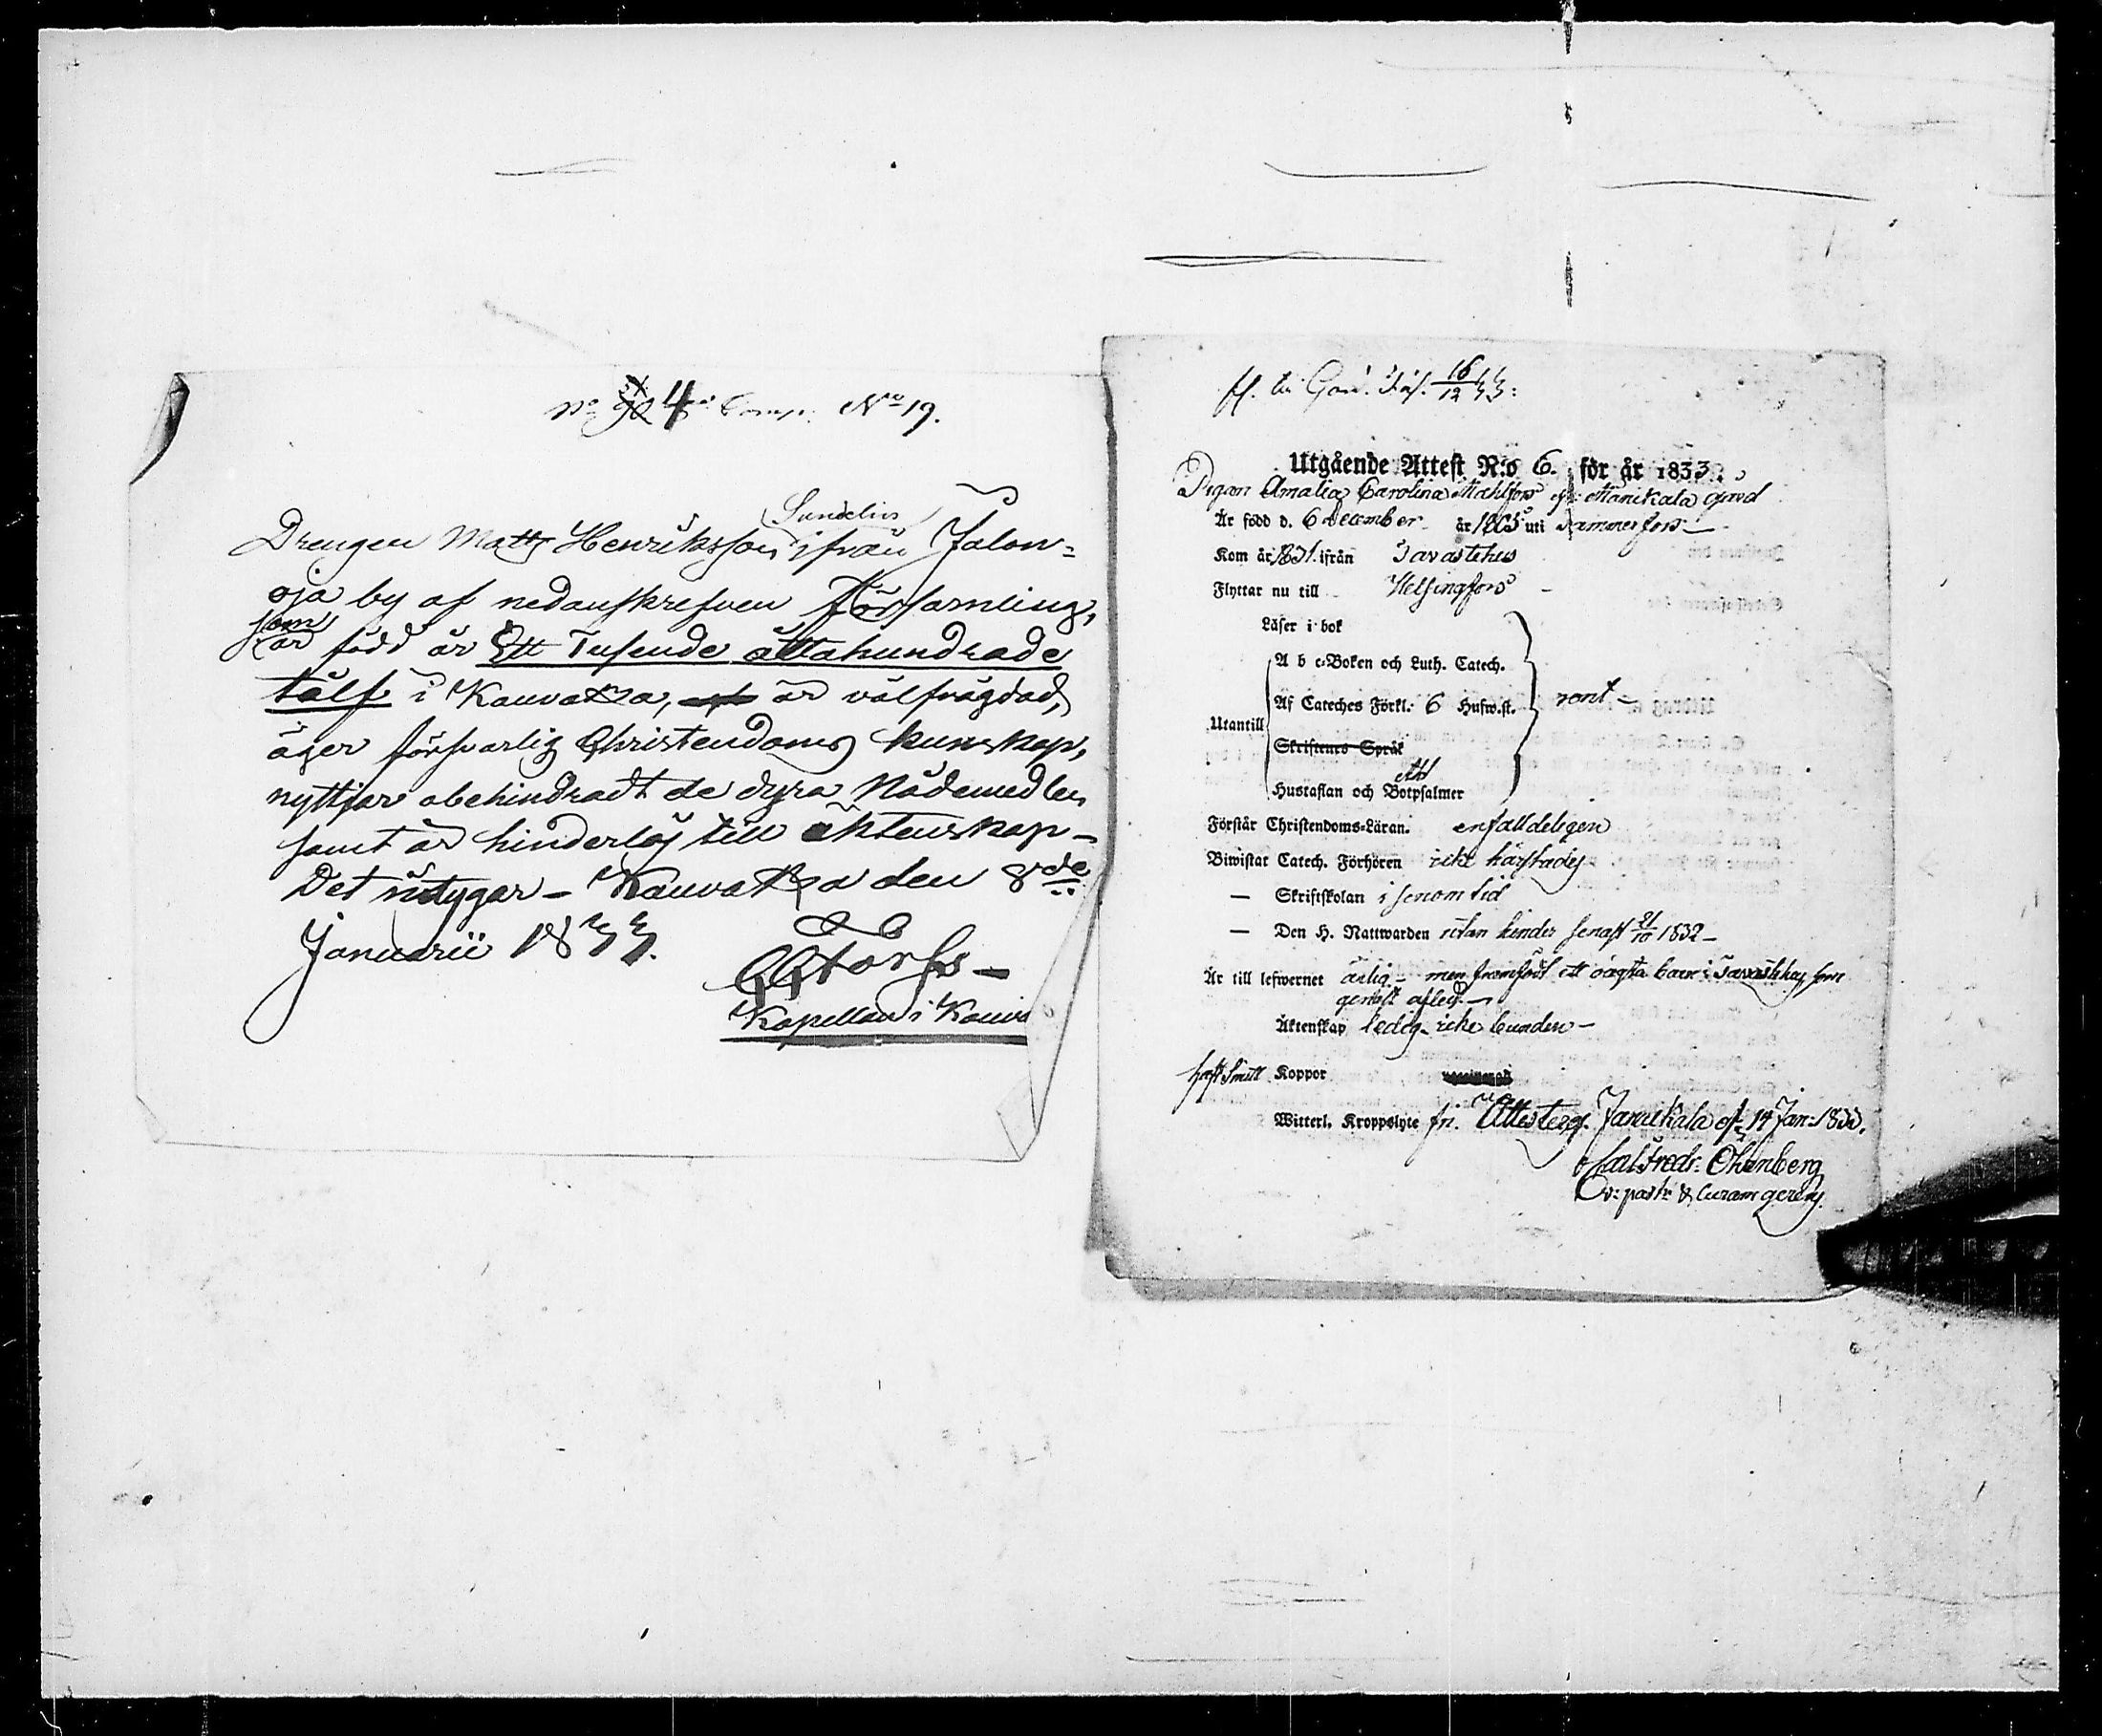 No 4 Comp. No 19.
Sundelius
Drengen Matts Henriksson ifrån Jalon-
oja by af nedanskrefven församling,
som
är född år Ett Tusende åttahundrade
tålf i Kauvatza, är välfrägdad,
äger försvarlig Christendoms kunskap,
nyttjar obehindradt de dyra Nådemedlen
samt är hinderlös till äktenskap-
Det intygar - Kauvatza den 8de
Januarii 1833.
Kapellan i Kauva
16/12 33:
Utgående Attest N:o 6. för år 1833.
Pigan Amalia Carolina Mahlfors
Är född d. 6 December år 1805 uti Tammerfors -
Kom år 1831. ifrån Tavastehus
Flyttar nu till Helsingfors -
Läser i bok
A b c-Boken och Luth. Catech.
Af Cateches Förkl. 6 Husw.st. rent -
Utantill
Skriftenes Språk
Hustaflan och Botpsalmer
Förstår Christendoms-Läran. enfalldeligen
Biwistat Catech. Förhören icke härstädes
— Skriftskolan i senom tid
— Den H. Nattwarden utan hinder senast 21/10 1832 -
Är till lefwernet ärlig - men framfödt ett oägta barn i Tavastehus som
genast afled. -
Äktenskap ledig - icke bunden -
haft Smitt Koppor
Witterl. Kroppslyte fri. Attesterar Janakala d. 14 Jan: 1833.
Öhrnberg